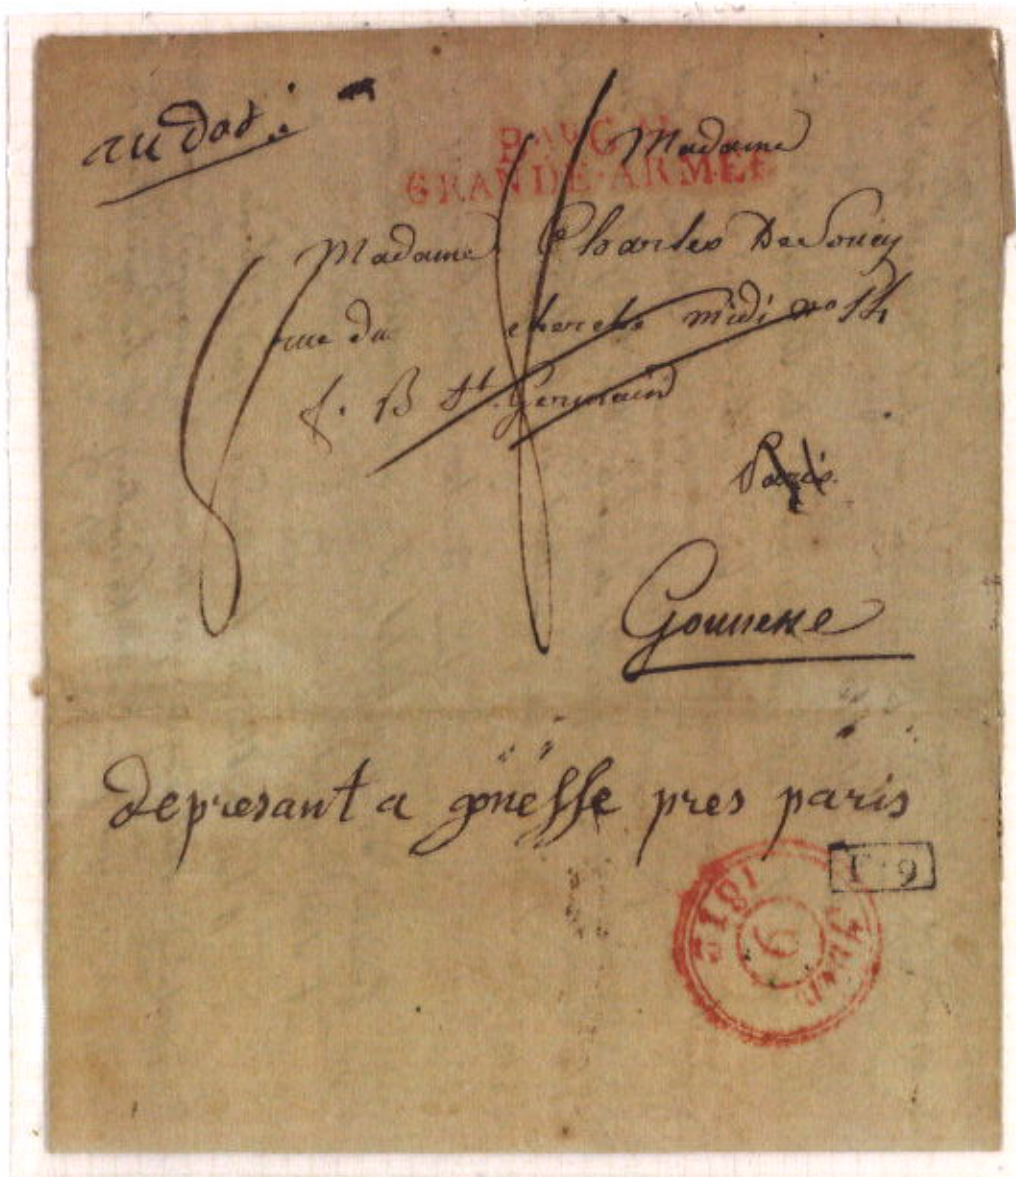 au dos
Madame
GRANDE-ARMÉE
Madame Charles DeSoucy
rue du cherche midi no 14
f. B St. Germain
Paris
Gonnesse
depresant a gonesse pres paris
F. 9
1812
9